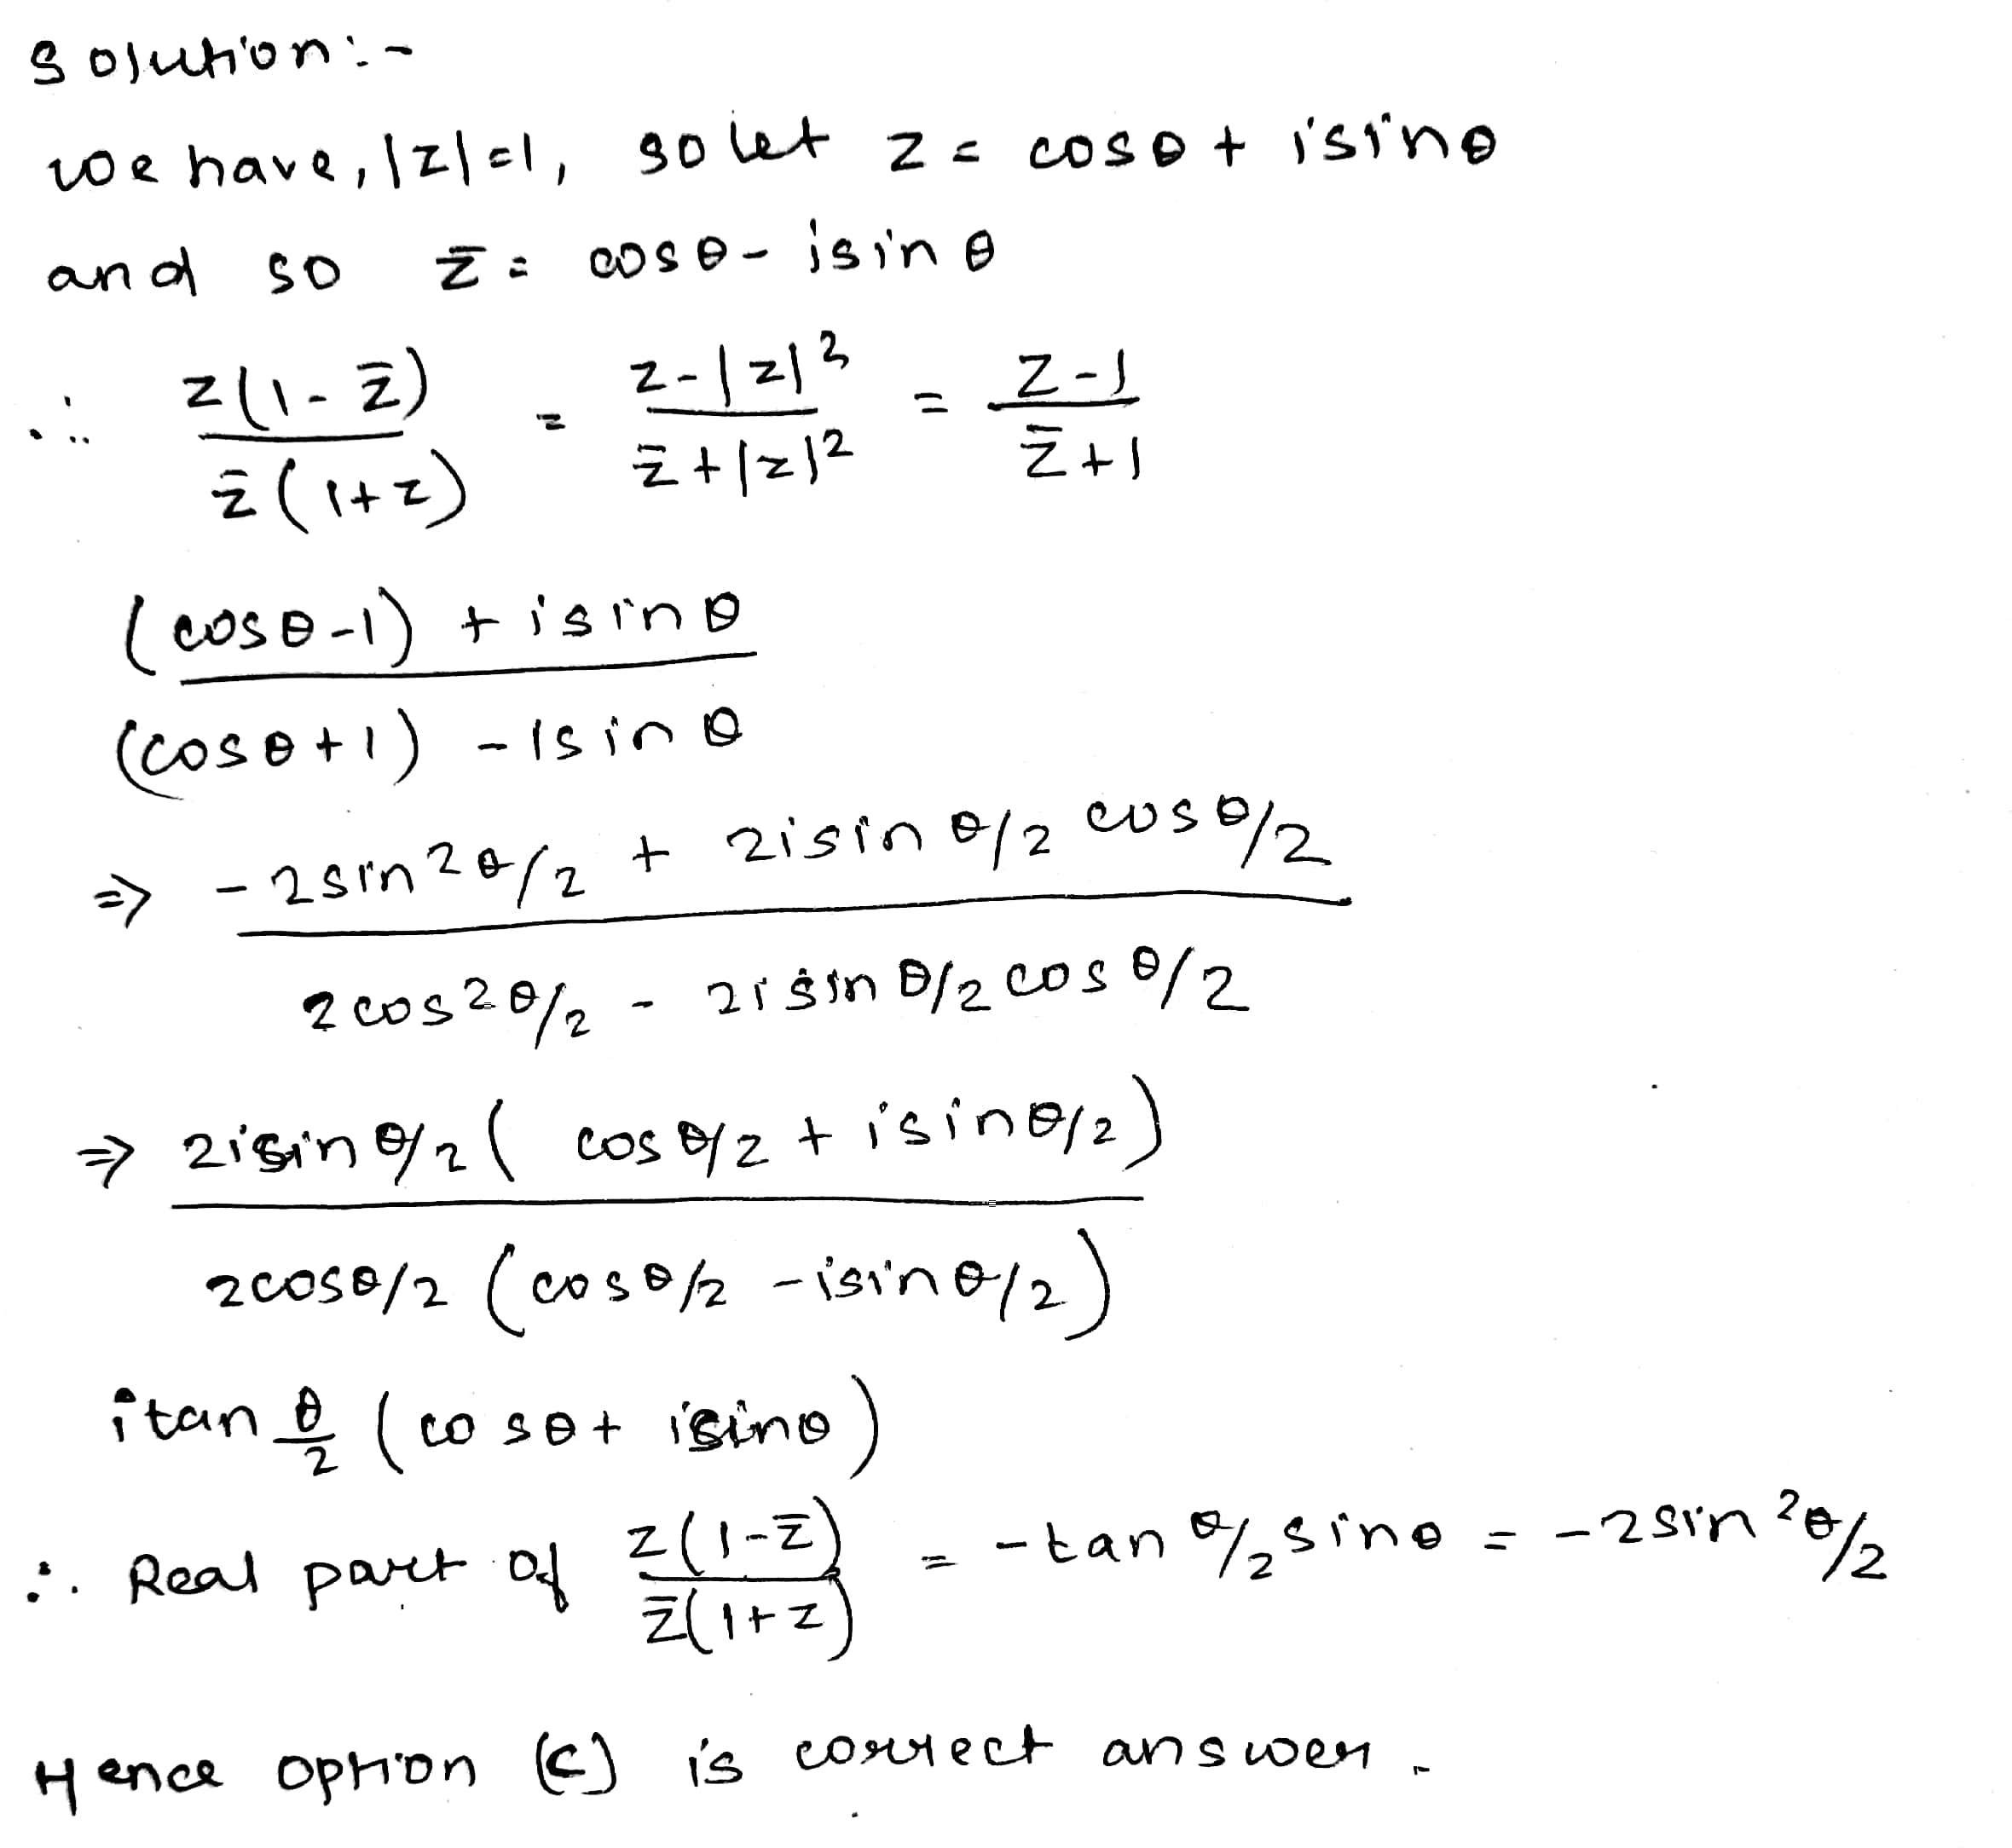 Solution:-
we have, |z|=1, so let z = cosθ + isinθ
and so z̄ = cosθ - isinθ
∴ z(1-z̄) / z̄(1+z) = z-|z|² / z̄+|z|² = z-1 / z̄+1
(cosθ-1) + isinθ
(cosθ+1) - isinθ
⇒ -2sin²θ/2 + 2isinθ/2 cosθ/2
2cos²θ/2 - 2isinθ/2 cosθ/2
⇒ 2isinθ/2 ( cosθ/2 + isinθ/2)
2cosθ/2 (cosθ/2 - isinθ/2)
itan θ/2 (cosθ + isinθ)
∴ Real part of z(1-z̄) / z̄(1+z) = -tan θ/2 sinθ = -2sin²θ/2
Hence option (c) is correct answer.